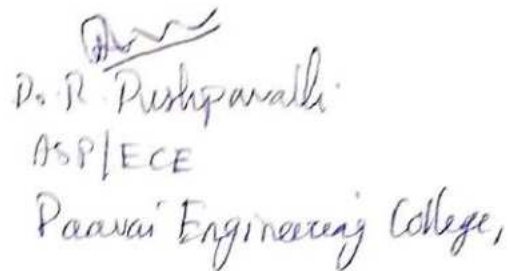 Dr. R. Pushpavalli
ASP/ECE
Paavai Engineering College,